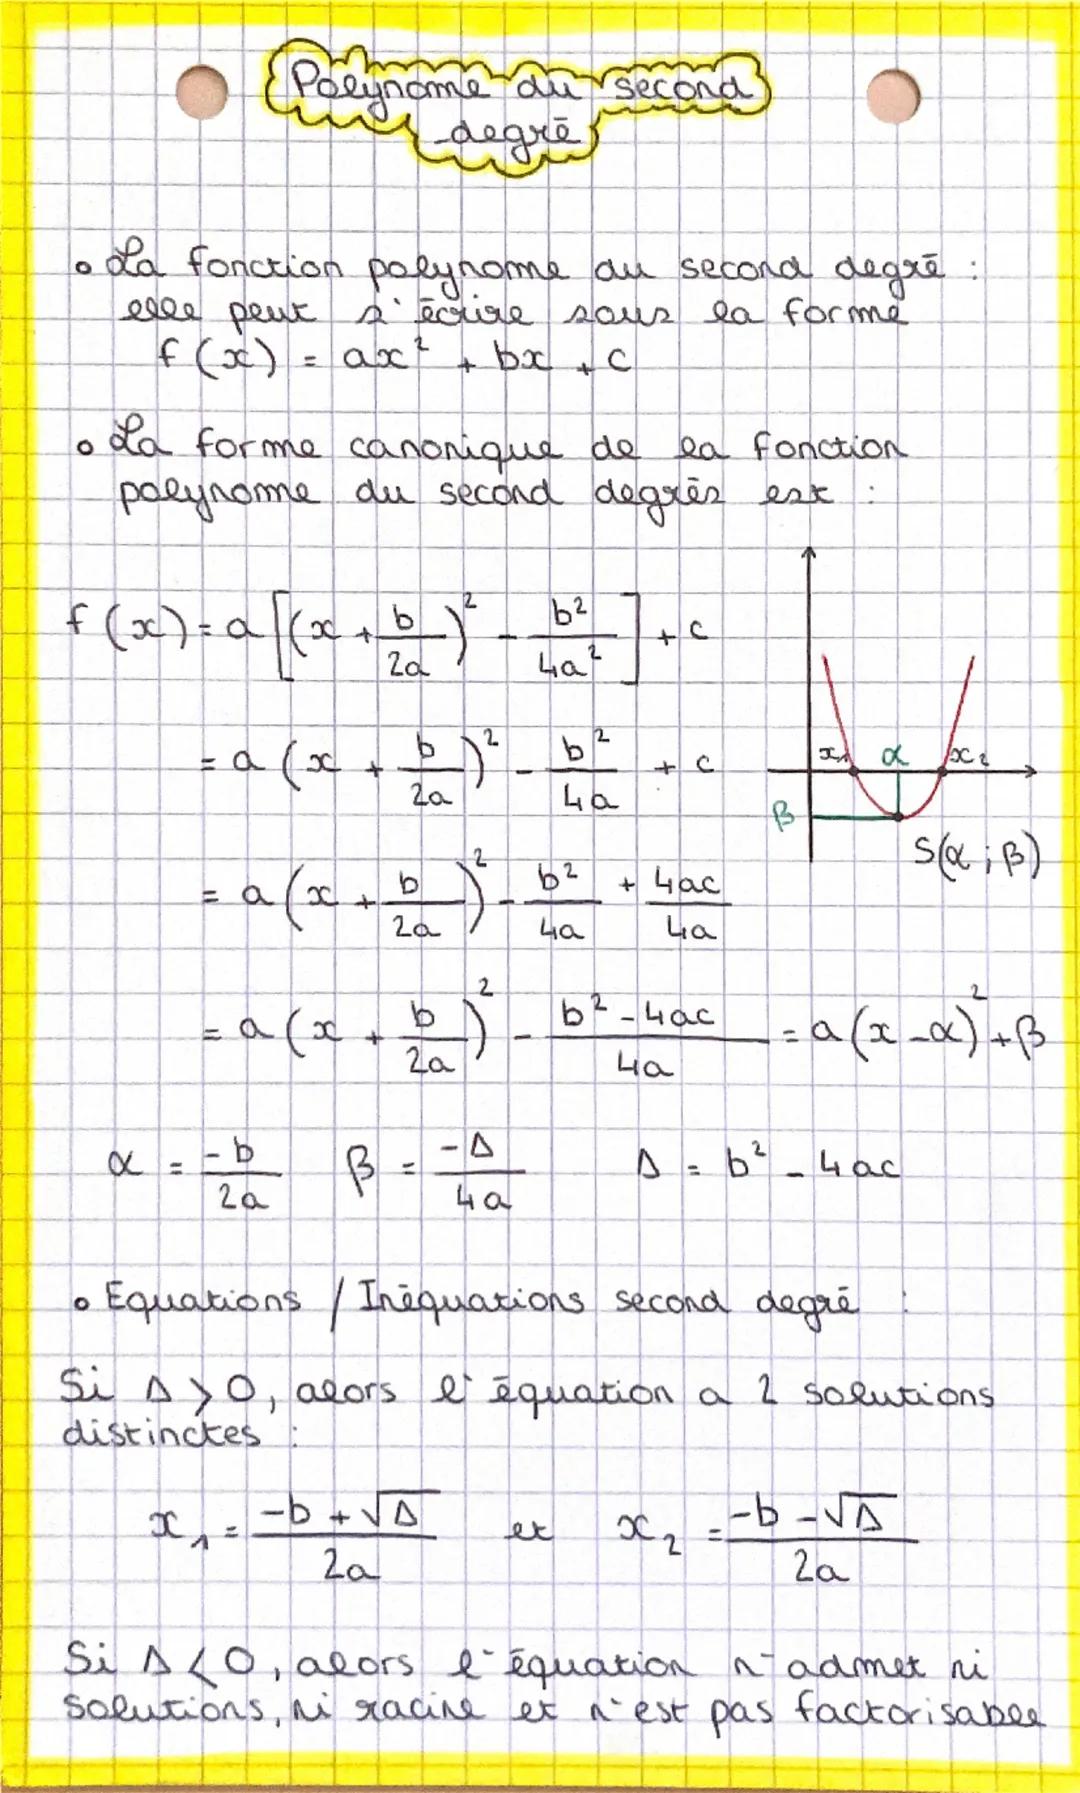 Polynome du second
degré
• La fonction polynome du second degré :
elle peut s'écrire sous la forme
f(x) = ax² + bx + c
• La forme canonique de la fonction
polynome du second degrés est :
f(x) = a[(x + b/2a)² - b²/4a²] + c
= a(x + b/2a)² - b²/4a + c
x₁ α x₂
β
S(α ; β)
= a(x + b/2a)² - b²/4a + 4ac/4a
= a(x + b/2a)² - b² - 4ac/4a = a(x - α)² + β
α = -b/2a β = -Δ/4a Δ = b² - 4ac
• Equations / Inéquations second degré :
Si Δ > 0, alors l'équation a 2 solutions
distinctes :
x₁ = -b + √Δ/2a et x₂ = -b - √Δ/2a
Si Δ < 0, alors l'équation n'admet ni
solutions, ni racine et n'est pas factorisable